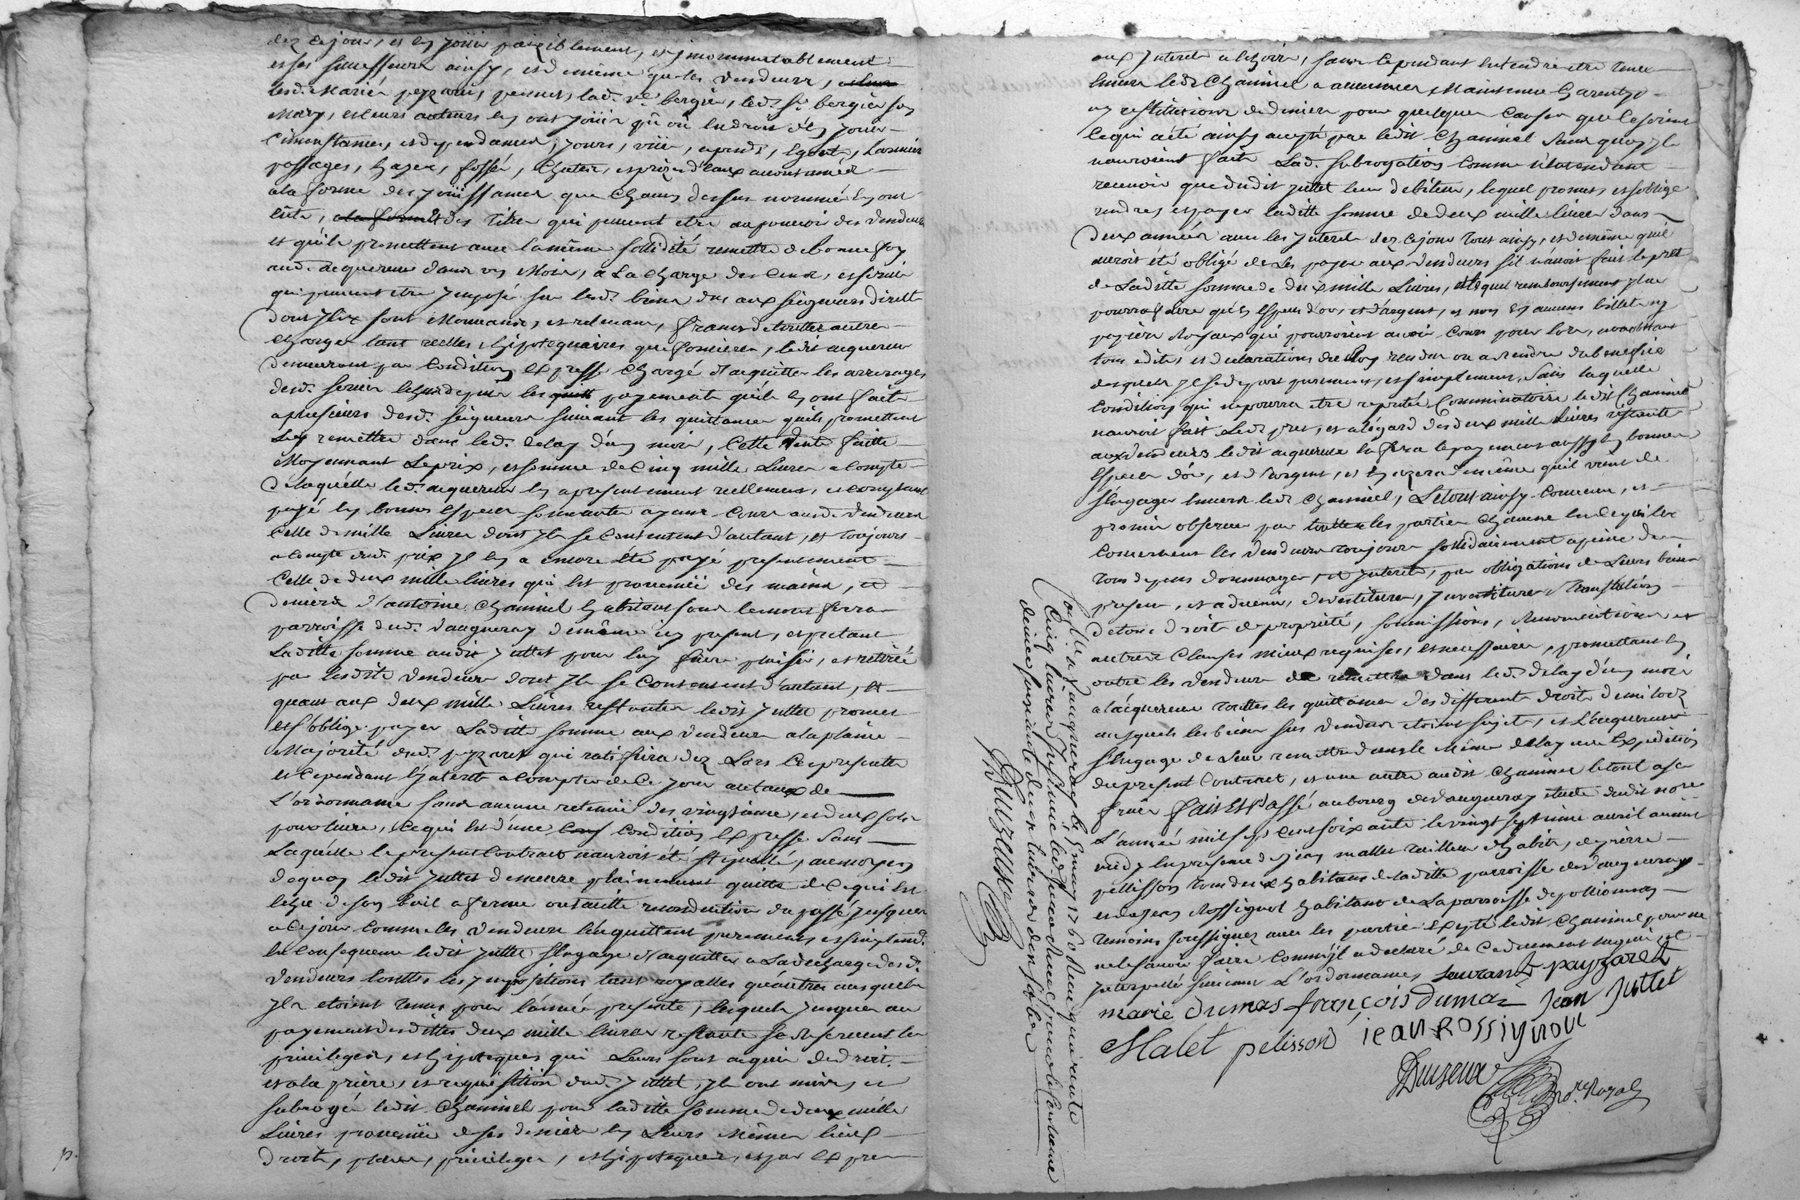 dez ce jour, et en jouir paisiblement, et jmommutablement
et ses successeurs ainsy, et de même que les vendeurs,
lesd. mariés peyzaret, lad. ve. bergier, led. sr. bergier son
mary, et leurs auteurs en ont jouir où ou endroit d'en jouir
circonstances, et dependances, jours, vües, aprends, egouts,
passages, hayes, fossés, et prises d'eaux accoutumées
a la forme des jouissances que chacun dessus nommé en ont
eüe, des titres qui peuvent etre au pouvoir des vendeurs
et qu'ils promettent avec la même sollidité remettre de bonne foy
aud. acquereur dans un mois, a la charge des cens, et servis
qui peuvent etre jmposé sur lesd. biens dus aux seigneurs directs
dont jls sont mouvants, et relevant, francs de touttes autres
charges tant reelles hipotequaires que foncieres, ledit acquereur
demeurant par condition expresse chargé d'acquitter les arrerages
desd. servis payements qu'ils en ont fait
a plusieurs desd. seigneurs suivant les quittances qu'ils promettent
luy remettre dans led. delay d'un mois, cette vente faitte
moyennant le prix, et somme de cinq mille livres a compte
de laquelle led. acquereur en a presentement reellement, et comptant
payé en bonnes especes sonnantes ayant cours ausd. vendeurs
celle de mille livres dont jls se contentent d'autant, et toujours
a compte dud. prix jl en a encore été payé presentement
celle de deux mille livres qui est provenüe des mains, et
deniers d'antoine chaninel habitant
parroisse dud. vaugneray de même icy present, et pretant
laditte somme audit juttet pour luy faire plaisir, et retirée
par lesdits vendeurs dont jls se contentent d'autant, et
quant aux deux mille livres restantes ledit juttet promet
et s'oblige payer laditte somme aux vendeurs a la pleine
majorité dud. peyzaret qui ratiffiera dez lors les presentes
et cependant l'interets a compter de ce jour au taux de
l'ordonnance sans aucune retenüe des vingtiemes, et deux sols
pour livre, ce qui est d'une condition expresse sans
laquelle le present contract n'auroit été stipullé, au moyen
de quoy ledit juttet demeure plainement quitte de ce qui est
de son bail a ferme ou taitte reconduction du passé jusques
a ce jour comme les vendeurs l'en quittent purement et simplemt.
en consequence ledit juttet s'engage d'acquitter a la decharge desd.
vendeurs touttes les jmpositions tant royalles qu'autres ausquels
jls etoient tenus pour l'année presente, lesquels jusques au
payement desdittes deux mille livres restante se reservent les
privileges, et hipoteques qui leurs sont acquis de droit,
et a la prière, et requisition dud. juttet, jls ont mis, et
subrogé ledit chaninel pour laditte somme de deux mille
livres provenüe de ses deniers en leurs mêmes lieux
droits, places, privileges, et hipoteques, et par expres
aux jnterets a echoir, sans cependant entendre etre tenu
envers ledit chaninel a aucunes maintenüe garentye
ny restitutions de deniers pour quelque causes que ce soient
ce qui a été ainsy accepté par ledit chaninel sans quoy jls
n'auroient faite lad. subrogation comme n'entendant
recevoir que dudit juttet leur debiteur, lequel promet, et s'oblige
rendre, et payer laditte somme de deux mille livres dans
deux années avec les jnterets dez ce jour tout ainsy, et de même qu'il
auroit été obligé de les payer aux vendeurs s'il n'avoit fait le pret
de laditte somme de deux mille livres, et lequel remboursement jl ne
pourra faire qu'en especes d'or, et d'argent, et non en aucuns billets ny
papiers royaux qui pourroient avoir cours pour lors, nonobstant
tous edits, et declarations du roy rendus ou a rendre du benefice
desquels jl se depart purement, et simplement, sans laquelle
condition qui ne pourra etre reputée comminatoire ledit chaninel
n'auroit fait led. pret, et a legard des deux mille livres restante
aux vendeurs ledit acquereur en fera le payement aussy en bonnes
especes d'or, et d'argent, et en usera de même qu'il vient de
s'engager envers led. chaninel, le tout ainsy convenu, et
promis observer par touttes les parties chacune en ce qui les
concernent les vendeurs toujours sollidairement a peine de
tous depens dommages, et jnterets, par obligations de leurs biens
present, et advenir, devestitures, jnvestitures translation
de tous droits de proprieté, soumissions, renonciations et
autres clauses mieux requises, et necessaires, promettant en
outre les vendeurs de remettre dans led. delay d'un mois
a l'acquereur touttes les quittances des differents droits de milods
ausquels les biens sus vendus etoient sujets, et l'acquereur
s'engage de leur remettre dans le même delay une expedition
du present contract, et une autre audit chaninel le tout a ses
frais fait et passé au bourg de vaugneray etude dudit nore.
l'année mil sept cent soixante le vingt septieme avril avant
midy en presence de jean mallet tailleur d'habits, et pierre
pellisson tous deux habitans de laditte parroisse de vaugneray,
et de jean rossignol habitant de la parroisse de pollionnay
temoins soussignez avec les parties excepté ledit chaninel pour ne
le savoir faire comm'jl a declaré de ce duement enquis et
jnterpellé suivant l'ordonnance, Laurant payzaret
marie dumas françois dumaz jean juttet
Malet pelisson iean Rossignol
Duizeux no.re Royal
conlle. a vaugneray le may 1760 Reçu quarante
cinq livres
denier
Duizeux